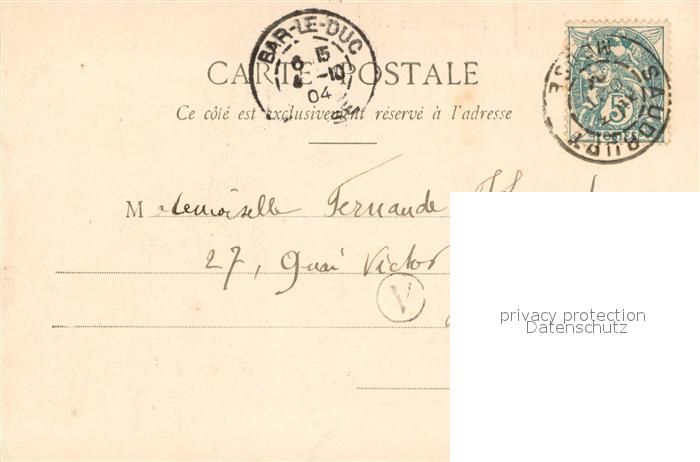 BAR-LE-DUC
6 15
-10
04
CARTE POSTALE
Ce côté est exclusivement réservé à l'adresse
SAUDRUPT
MEUSE
5
Mademoiselle Fernande
27, Quai Victor
V
privacy protection
Datenschutz